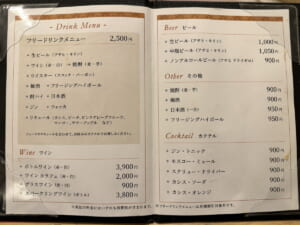 - Drink Menu -
フリードリンクメニュー 2,500円
・生ビール（アサヒ・キリン）
・ワイン（赤・白）・焼酎（麦・芋）
・ウイスキー（スコッチ・バーボン）
・梅酒 ・フリージングハイボール
・酎ハイ ・日本酒
・ジン ・ウォッカ
・リキュール
Wine ワイン
・ボトルワイン（赤・白） 3,900円
・ワイン カラフェ（赤・白） 2,000円
・グラスワイン（赤・白） 900円
・スパークリングワイン（ボトル） 3,800円
Beer ビール
・生ビール（アサヒ・キリン） 1,000円
・瓶ビール（アサヒ・キリン） 1,050円
・ノンアルコールビール（アサヒ ドライゼロ） 900円
Other その他
・焼酎（麦・芋） 900円
・梅酒 900円
・日本酒（一合） 950円
・フリージングハイボール 950円
Cocktail カクテル
・ジン・トニック 900円
・モスコー・ミュール 900円
・スクリュー・ドライバー 900円
・カシス・ソーダ 900円
・カシス・オレンジ 900円